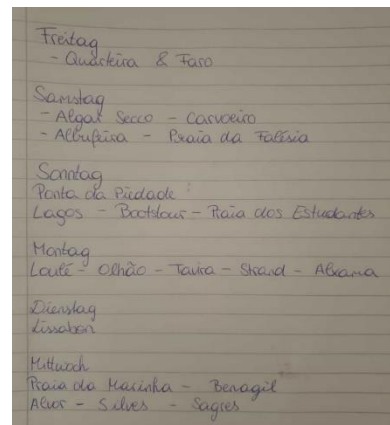 Freitag
- Quarteira & Faro
Samstag
- Algar Secco - Carvoeiro
- Albufeira - Praia da Falésia
Sonntag
Ponta da Piedade:
Lagos - Bootstour - Praia dos Estudantes
Montag
Loulé - Olhão - Tavira - Strand -
Dienstag
Lissabon
Mittwoch
Praia da Marinha - Benagil
Alvor - Silves - Sagres